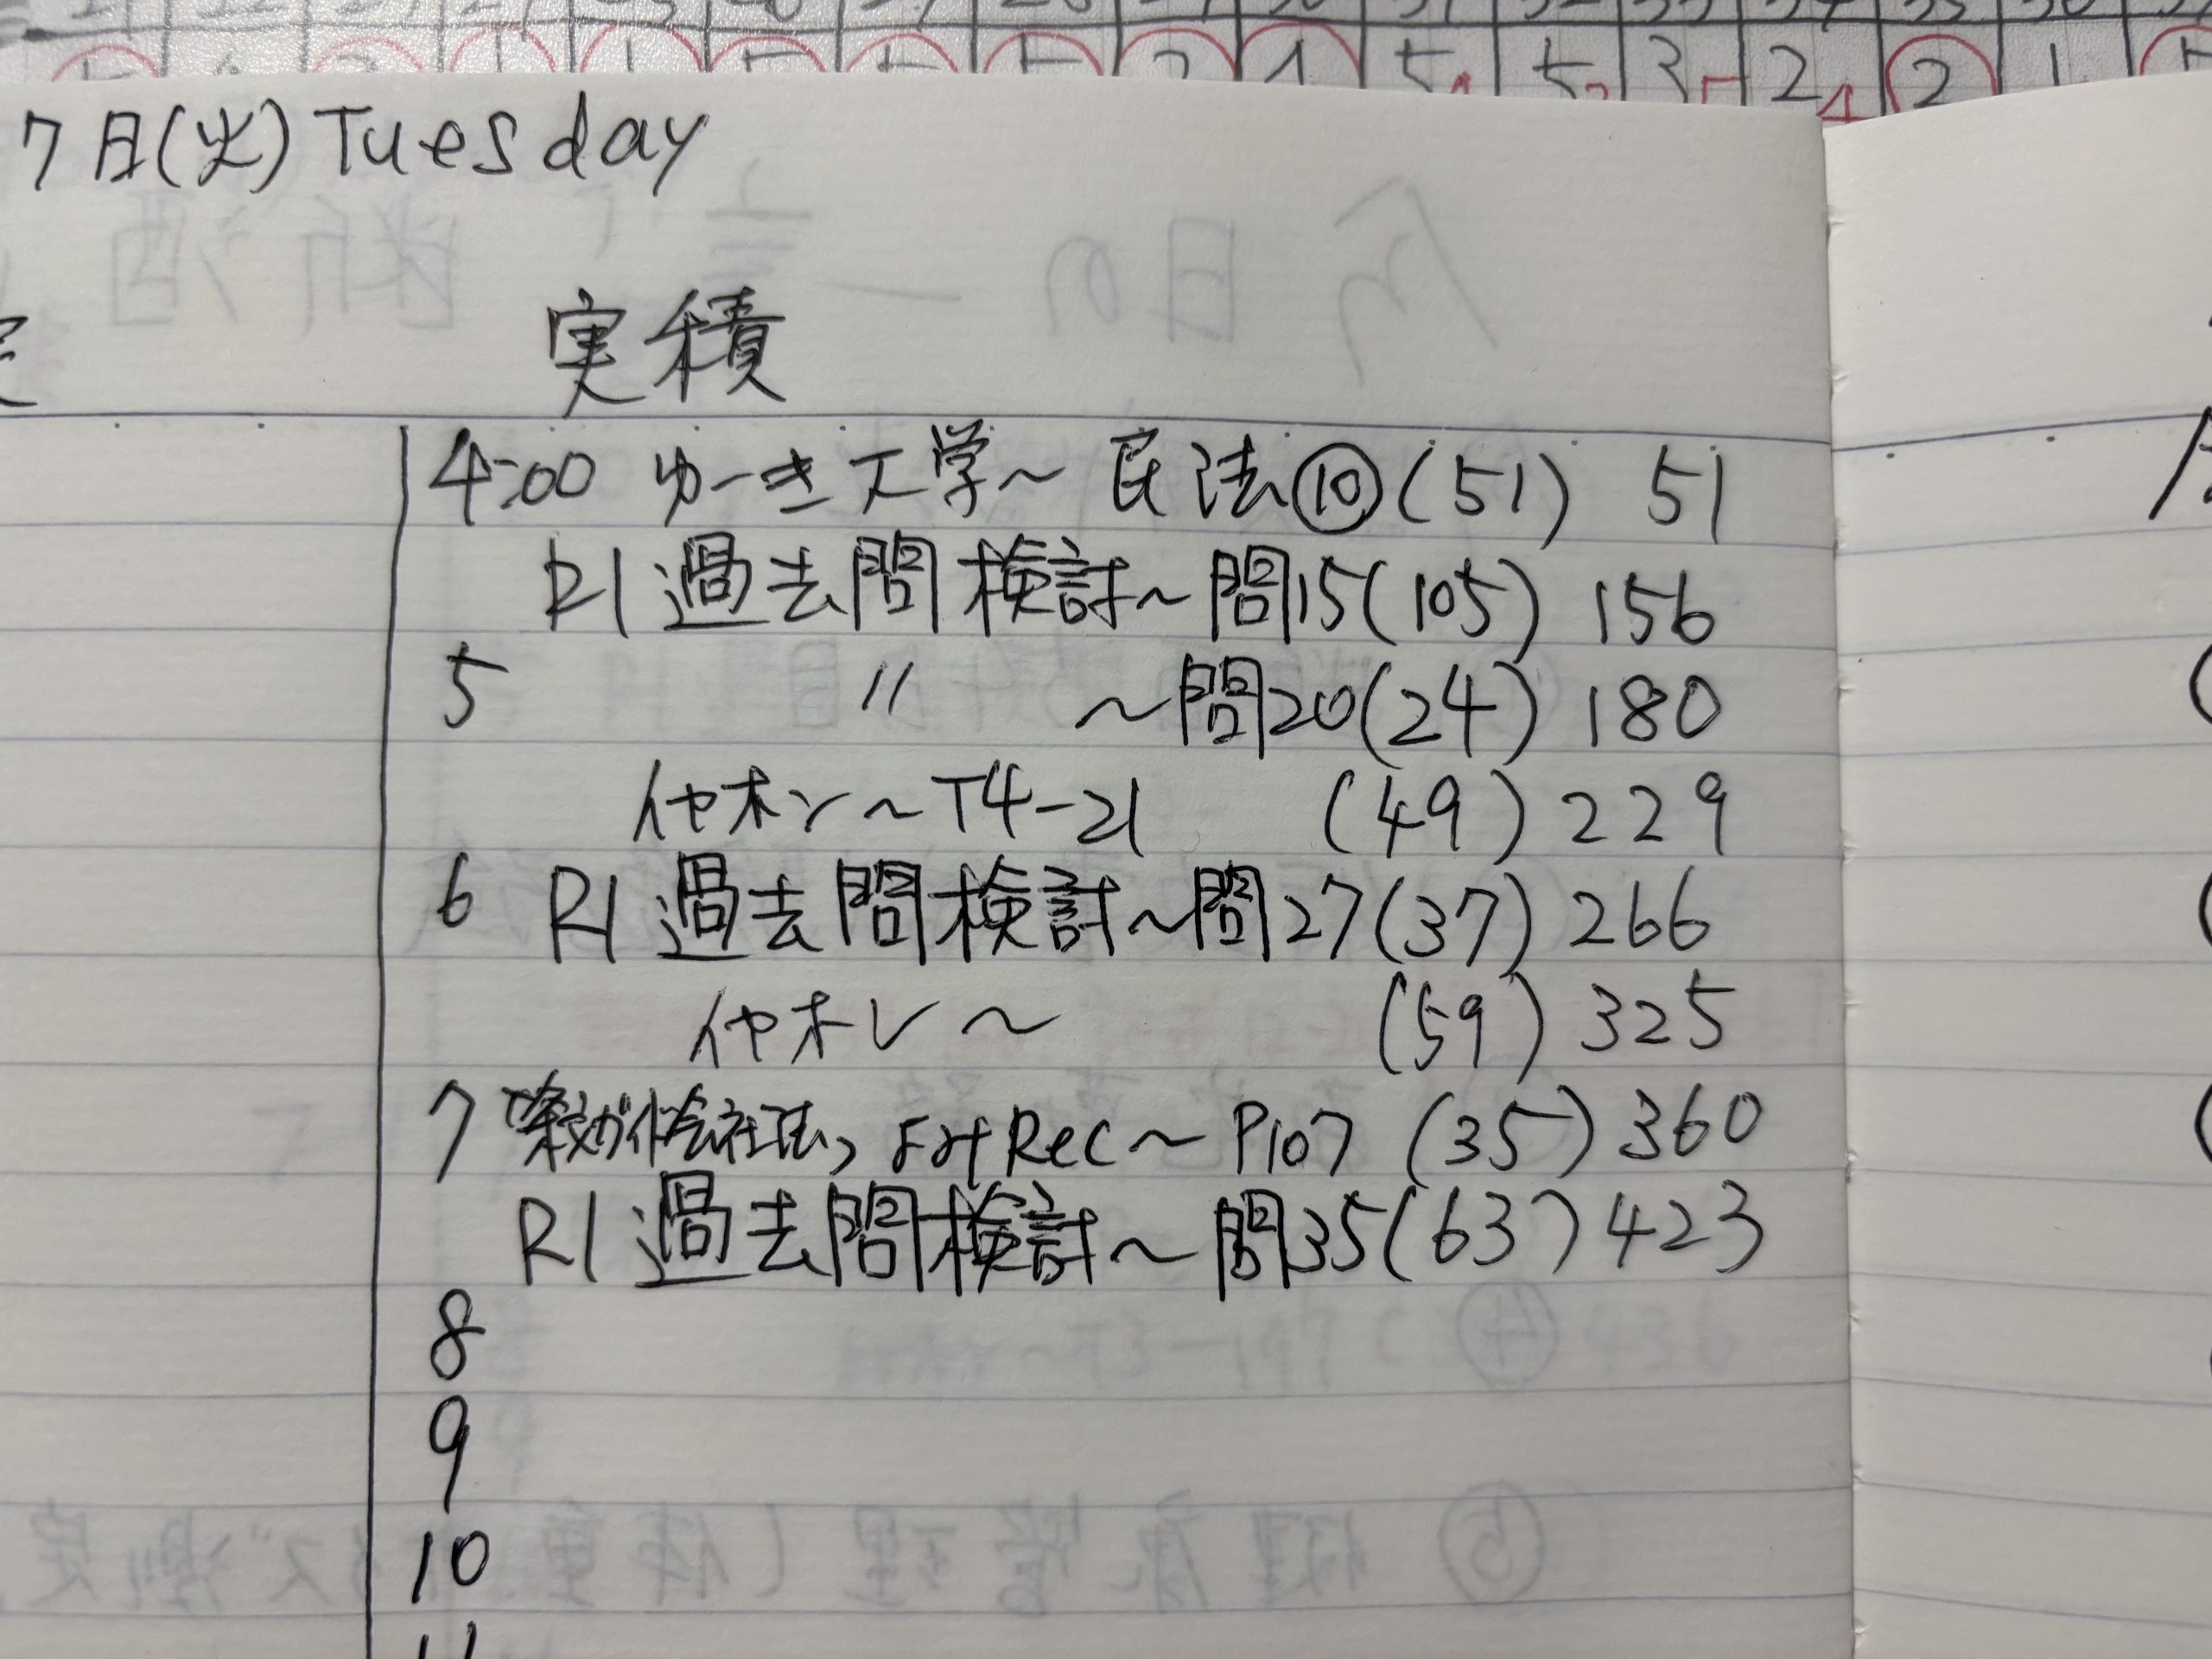 7日(火) Tuesday
実積
4:00 ゆーき大学～民法⑩(51) 51
R1過去問検討～問15(105) 156
5 〃 ～問20(24) 180
イヤホン～T4-21 (49) 229
6 R1過去問検討～問27(37) 266
イヤホン～ (59) 325
7 条文ガイド会社法, Rec～P107 (35) 360
R1過去問検討～問35(63) 423
8
9
10
11